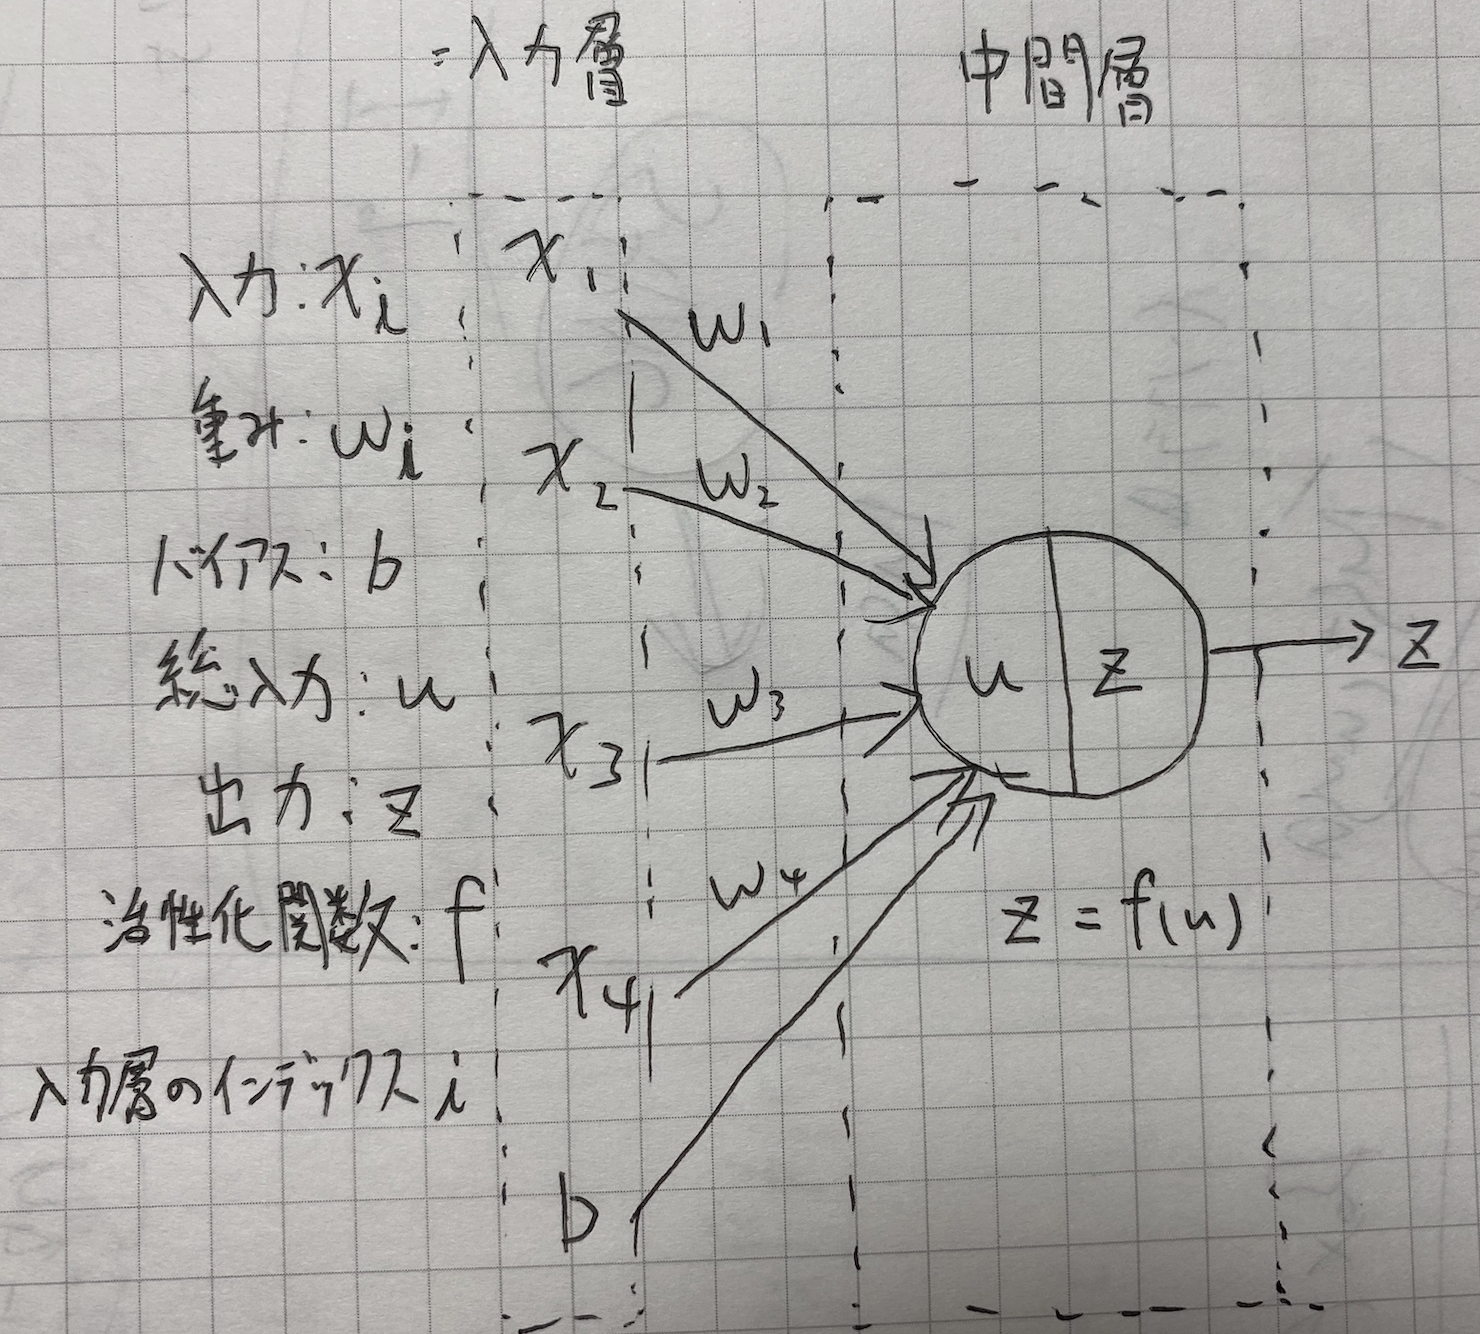 入力層
中間層
入力:xi
重み:wi
バイアス:b
総入力:u
出力:z
活性化関数:f
入力層のインデックス i
x1
w1
x2
w2
x3
w3
x4
w4
b
u
z
z
z = f(u)